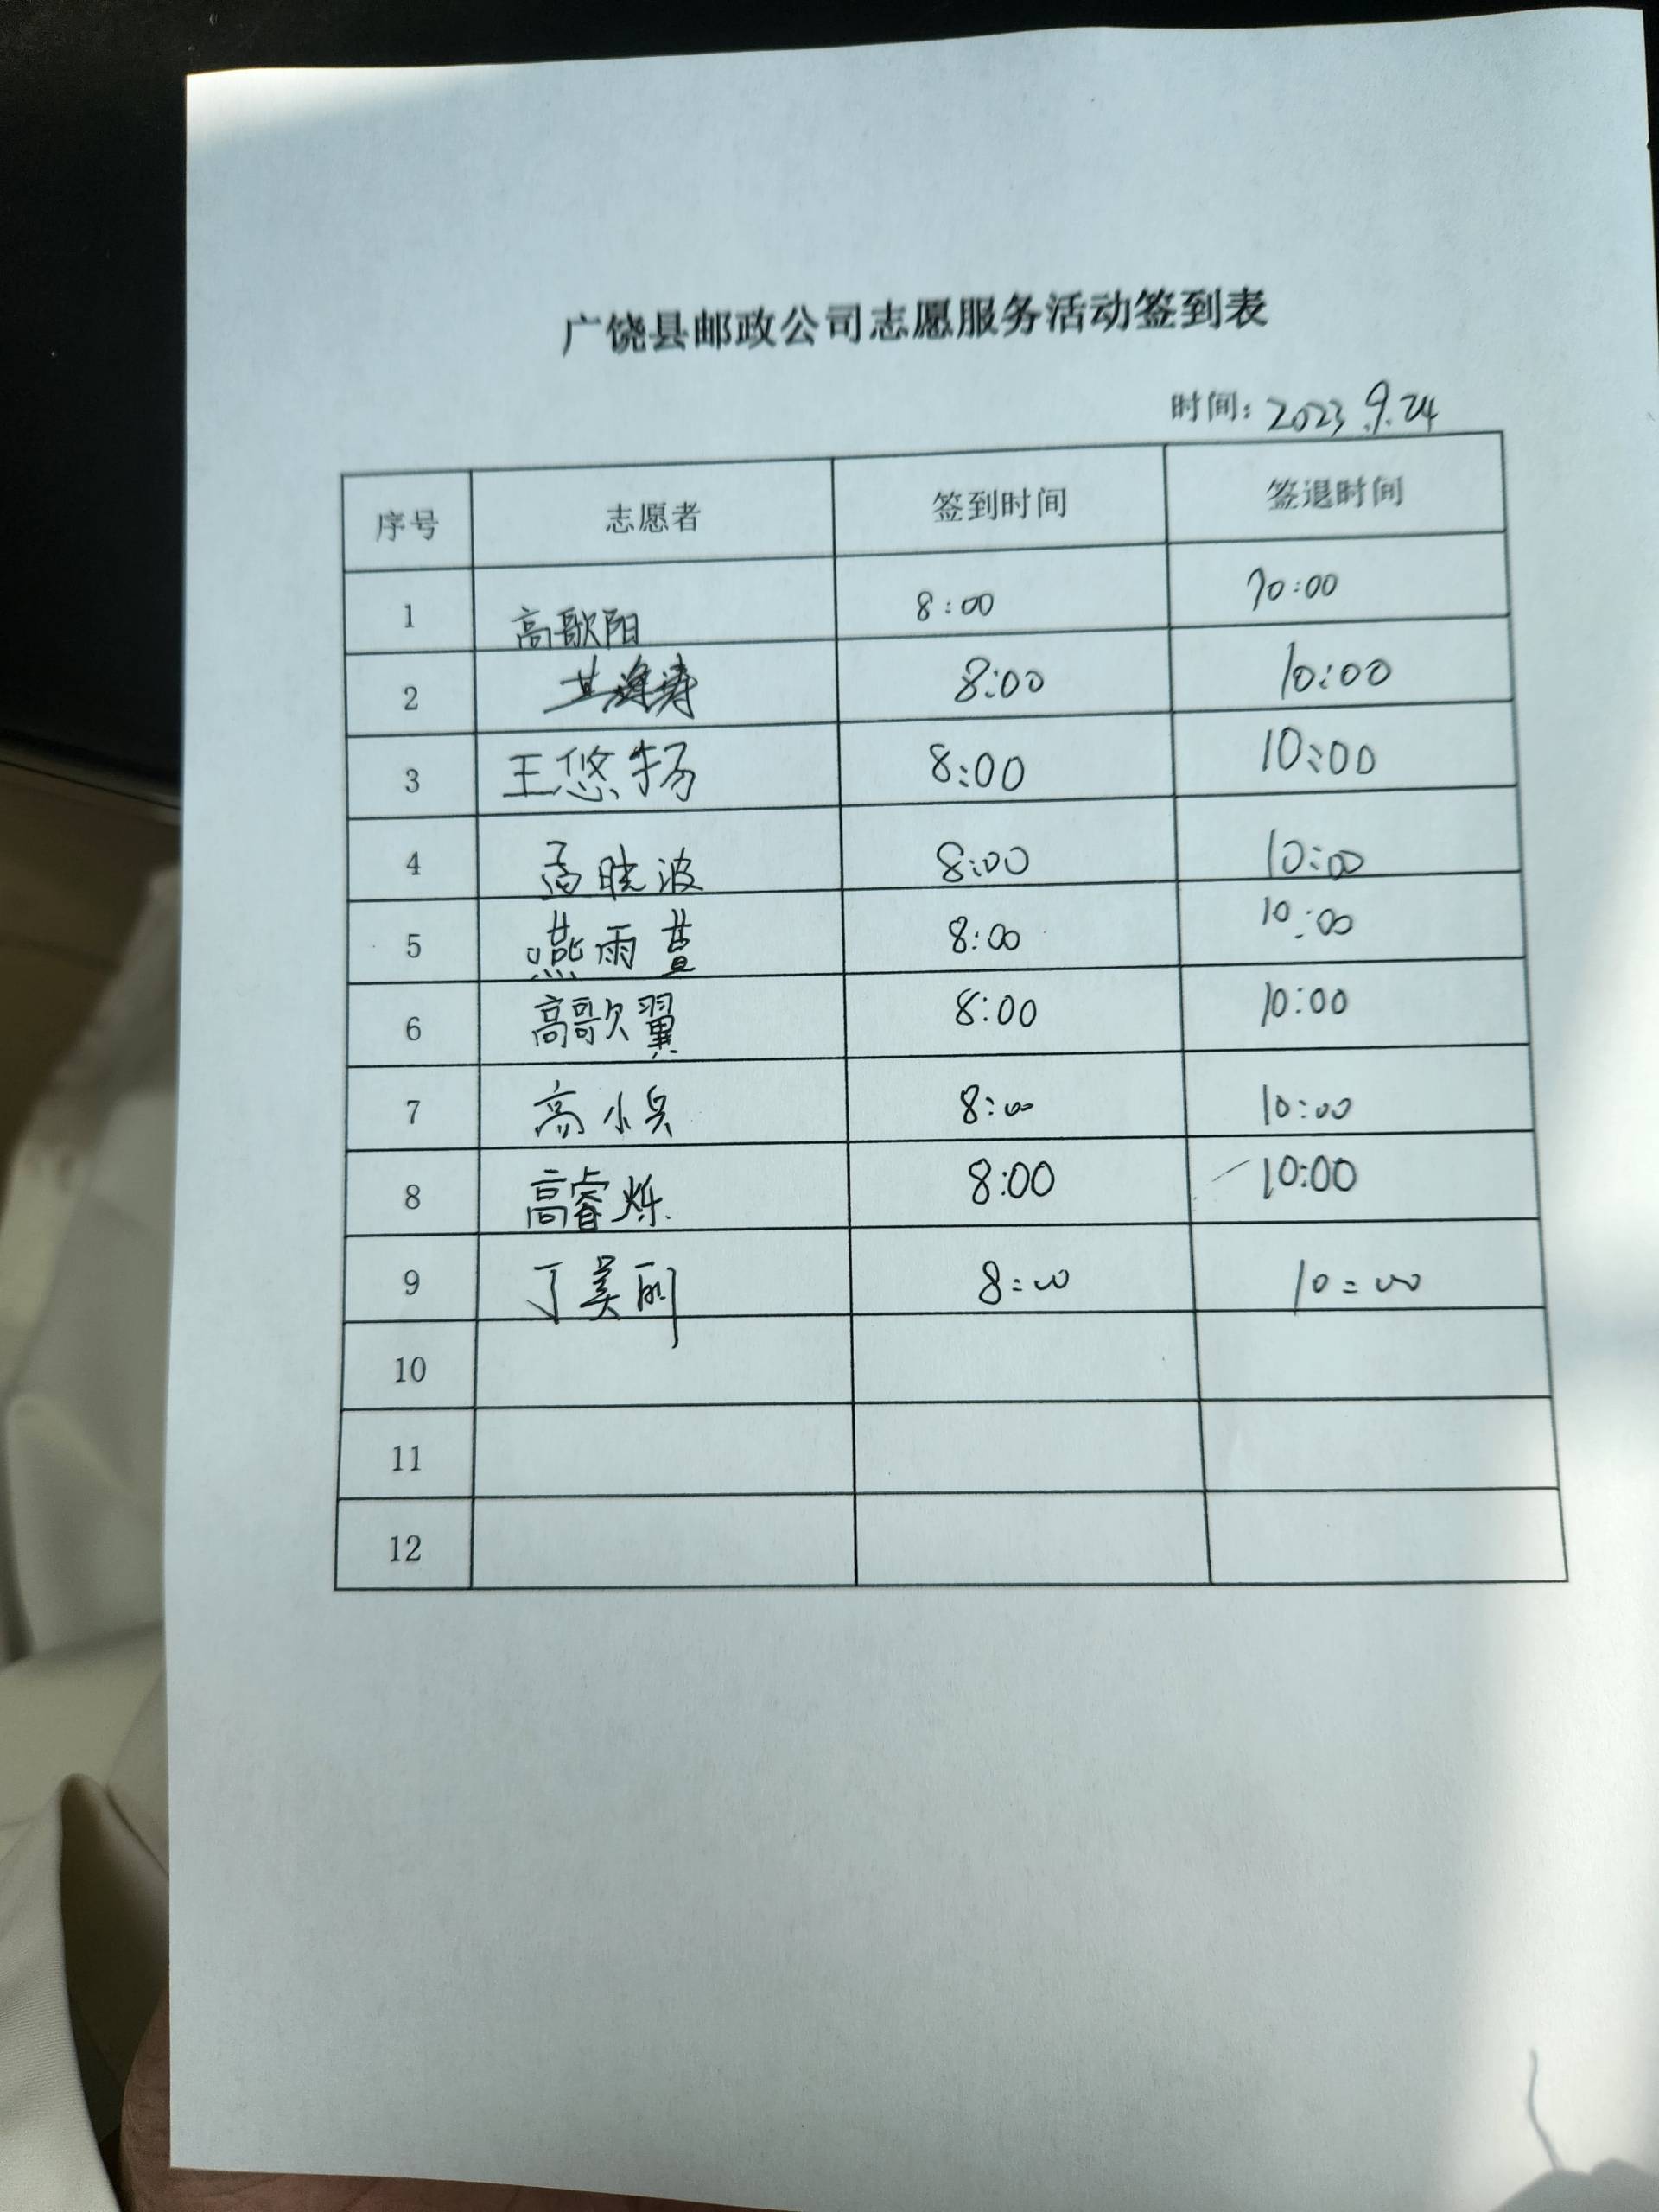 广饶县邮政公司志愿服务活动签到表
时间：2023.9.24
序号 志愿者 签到时间 签退时间
1 高歌阳 8:00 10:00
2 8:00 10:00
3 王悠扬 8:00 10:00
4 孟晓波 8:00 10:00
5 燕雨萱 8:00 10:00
6 高歌翼 8:00 10:00
7 高小兵 8:00 10:00
8 高睿烁 8:00 10:00
9 丁美丽 8:00 10:00
10
11
12